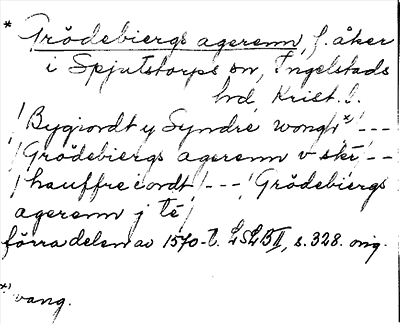 * Grödebiergs agerenn, f. åker
i Spjutstorps sn, Ingelstads
hd, Krist. l.
/ Bygiordt y Syndre wongh *) / ---
/ Grödebiergs agerenn v ski / --
/ hauffre iordt / --- / Grödebiergs
agerenn j té /
förra delen av 1570-t. LSLB II, s. 328. orig.
*) vang.